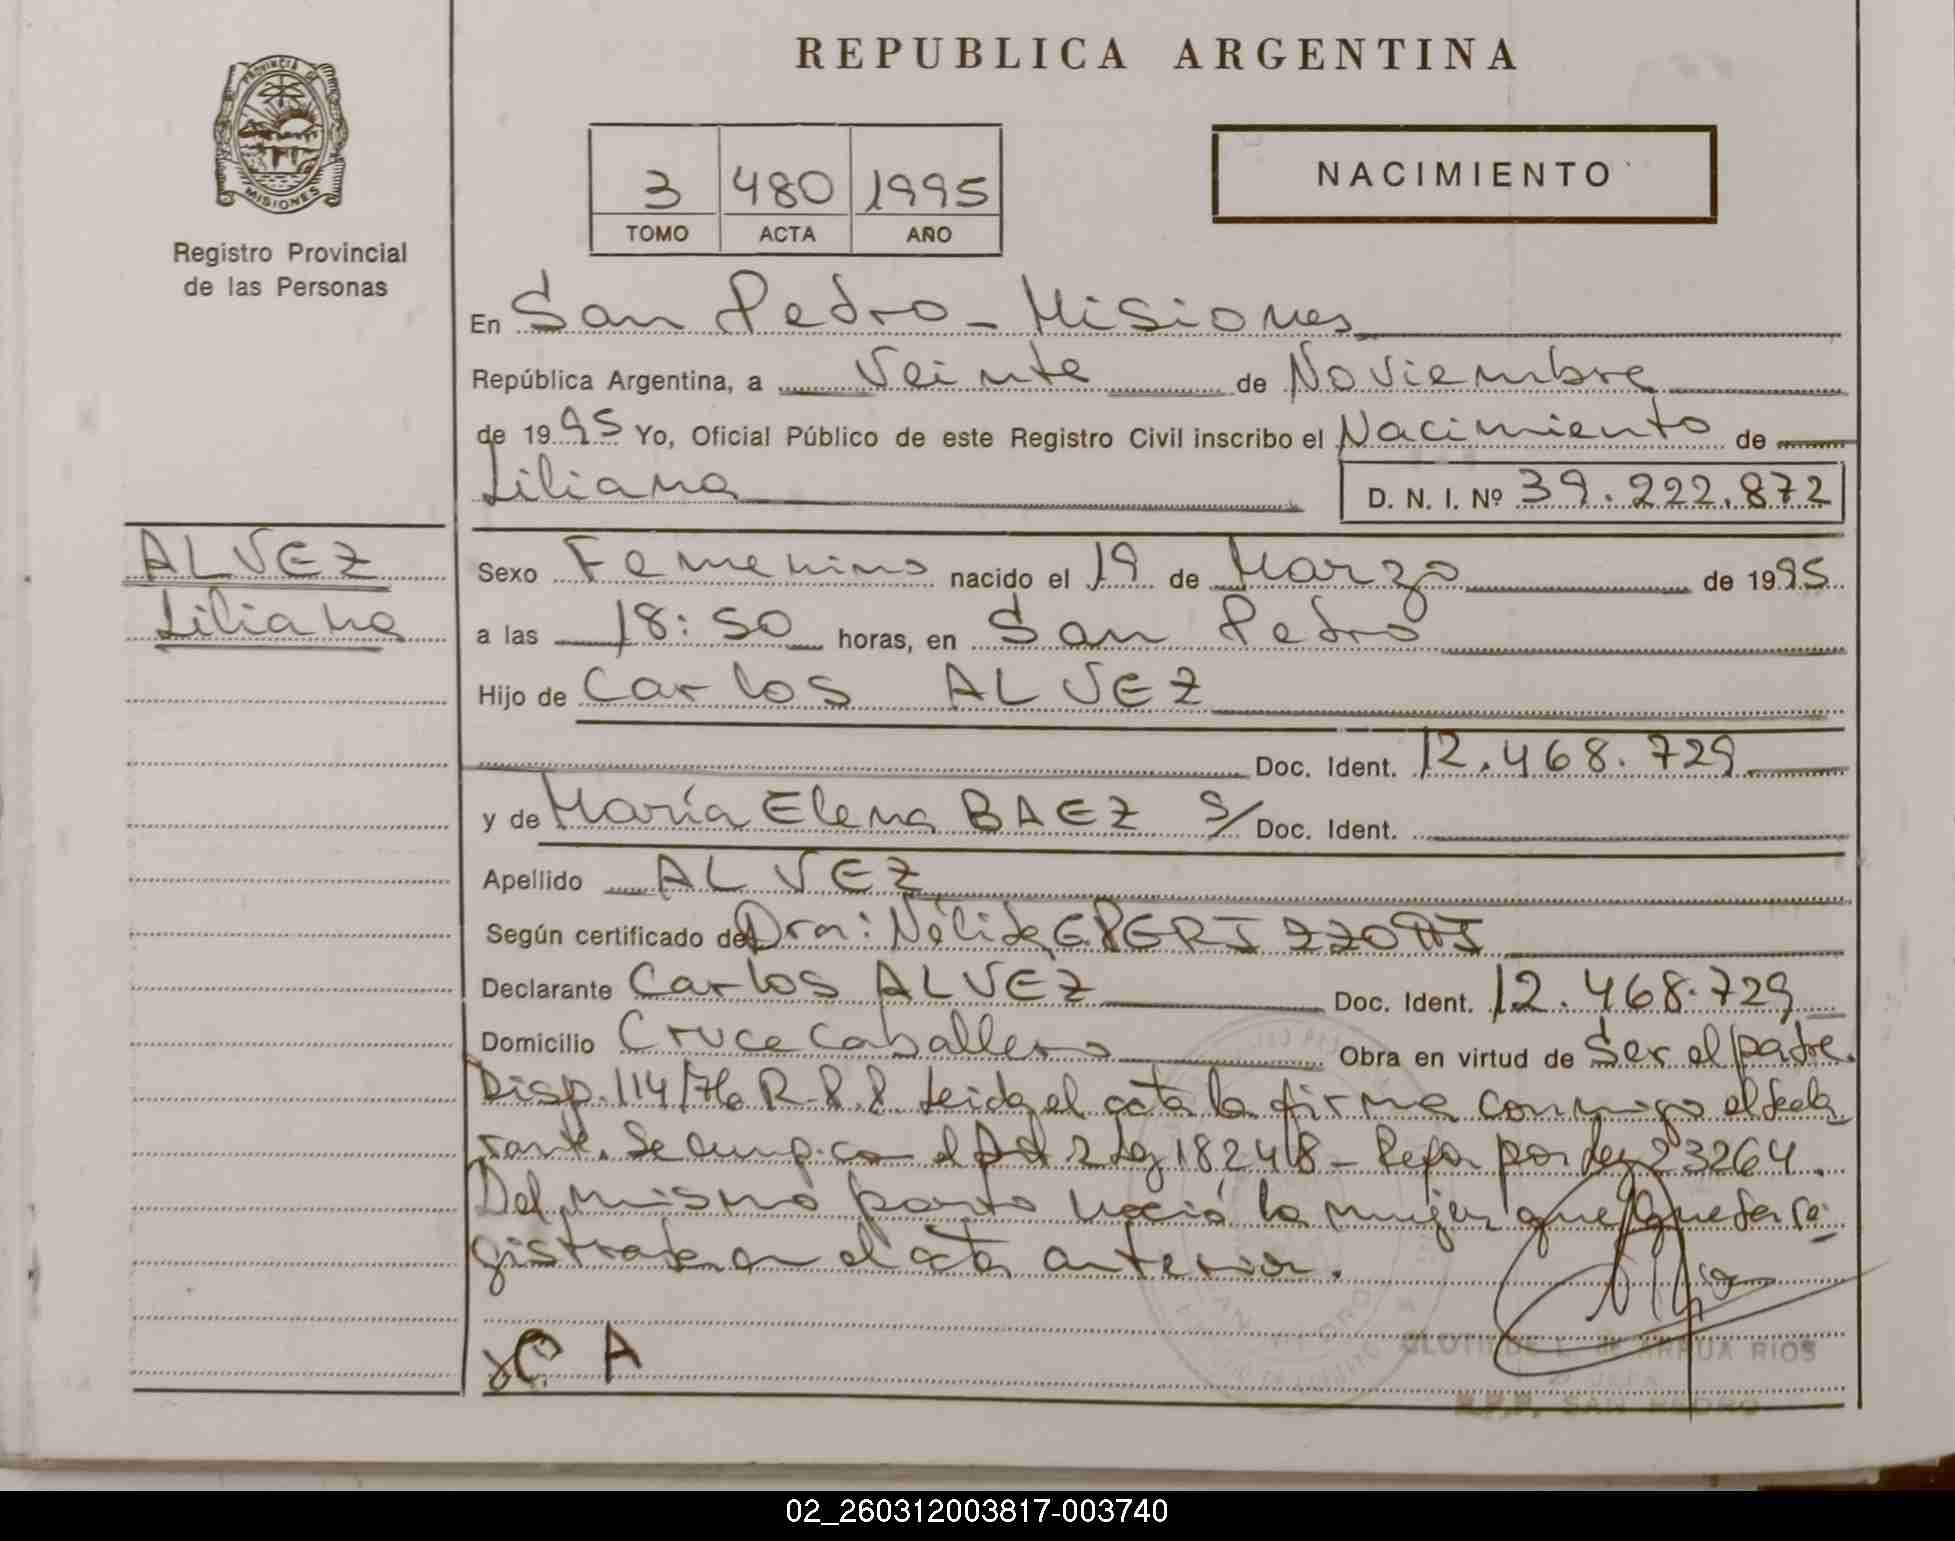 REPUBLICA ARGENTINA
PROVINCIA DE
MISIONES
Registro Provincial
de las Personas
3 480 1995
TOMO ACTA AÑO
NACIMIENTO
En San Pedro - Misiones
República Argentina, a Veinte de Noviembre
de 1995 Yo, Oficial Público de este Registro Civil inscribo el Nacimiento de
Liliana D. N. I. Nº 39.222.872
ALVEZ
Liliana
Sexo Femenino nacido el 19 de Marzo de 1995
a las 18:50 horas, en San Pedro
Hijo de Carlos ALVEZ
Doc. Ident. 12.468.729
y de María Elena BAEZ S/ Doc. Ident.
Apellido ALVEZ
Según certificado de Dra: Nélida
Declarante Carlos ALVEZ Doc. Ident. 12.468.729
Domicilio Cruce Caballero Obra en virtud de Ser el padre.
Disp. 114/76 R.P.P. Leida el acta la firma conmigo el decla
rante. Se cump. con el Art 2 Ley 18248 - Refor por Ley 23264.
Del mismo parto nació la mujer que queda re-
gistrada en el acta anterior.
C. A
RIOS
R.P.P. SAN PEDRO
02_260312003817-003740